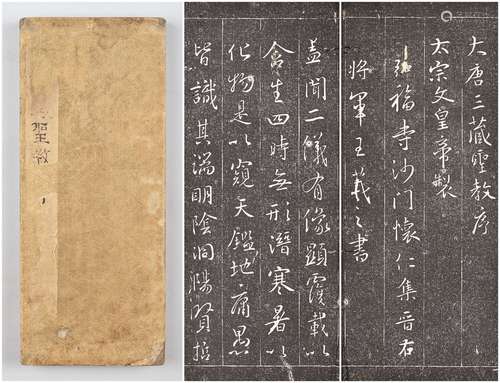 大唐三藏聖教序
太宗文皇帝製
弘福寺沙門懷仁集晉右
將軍王羲之書
蓋聞二儀有像顯覆載以
含生四時無形潛寒暑以
化物是以窺天鑑地庸愚
皆識其端明陰洞陽賢哲
聖教